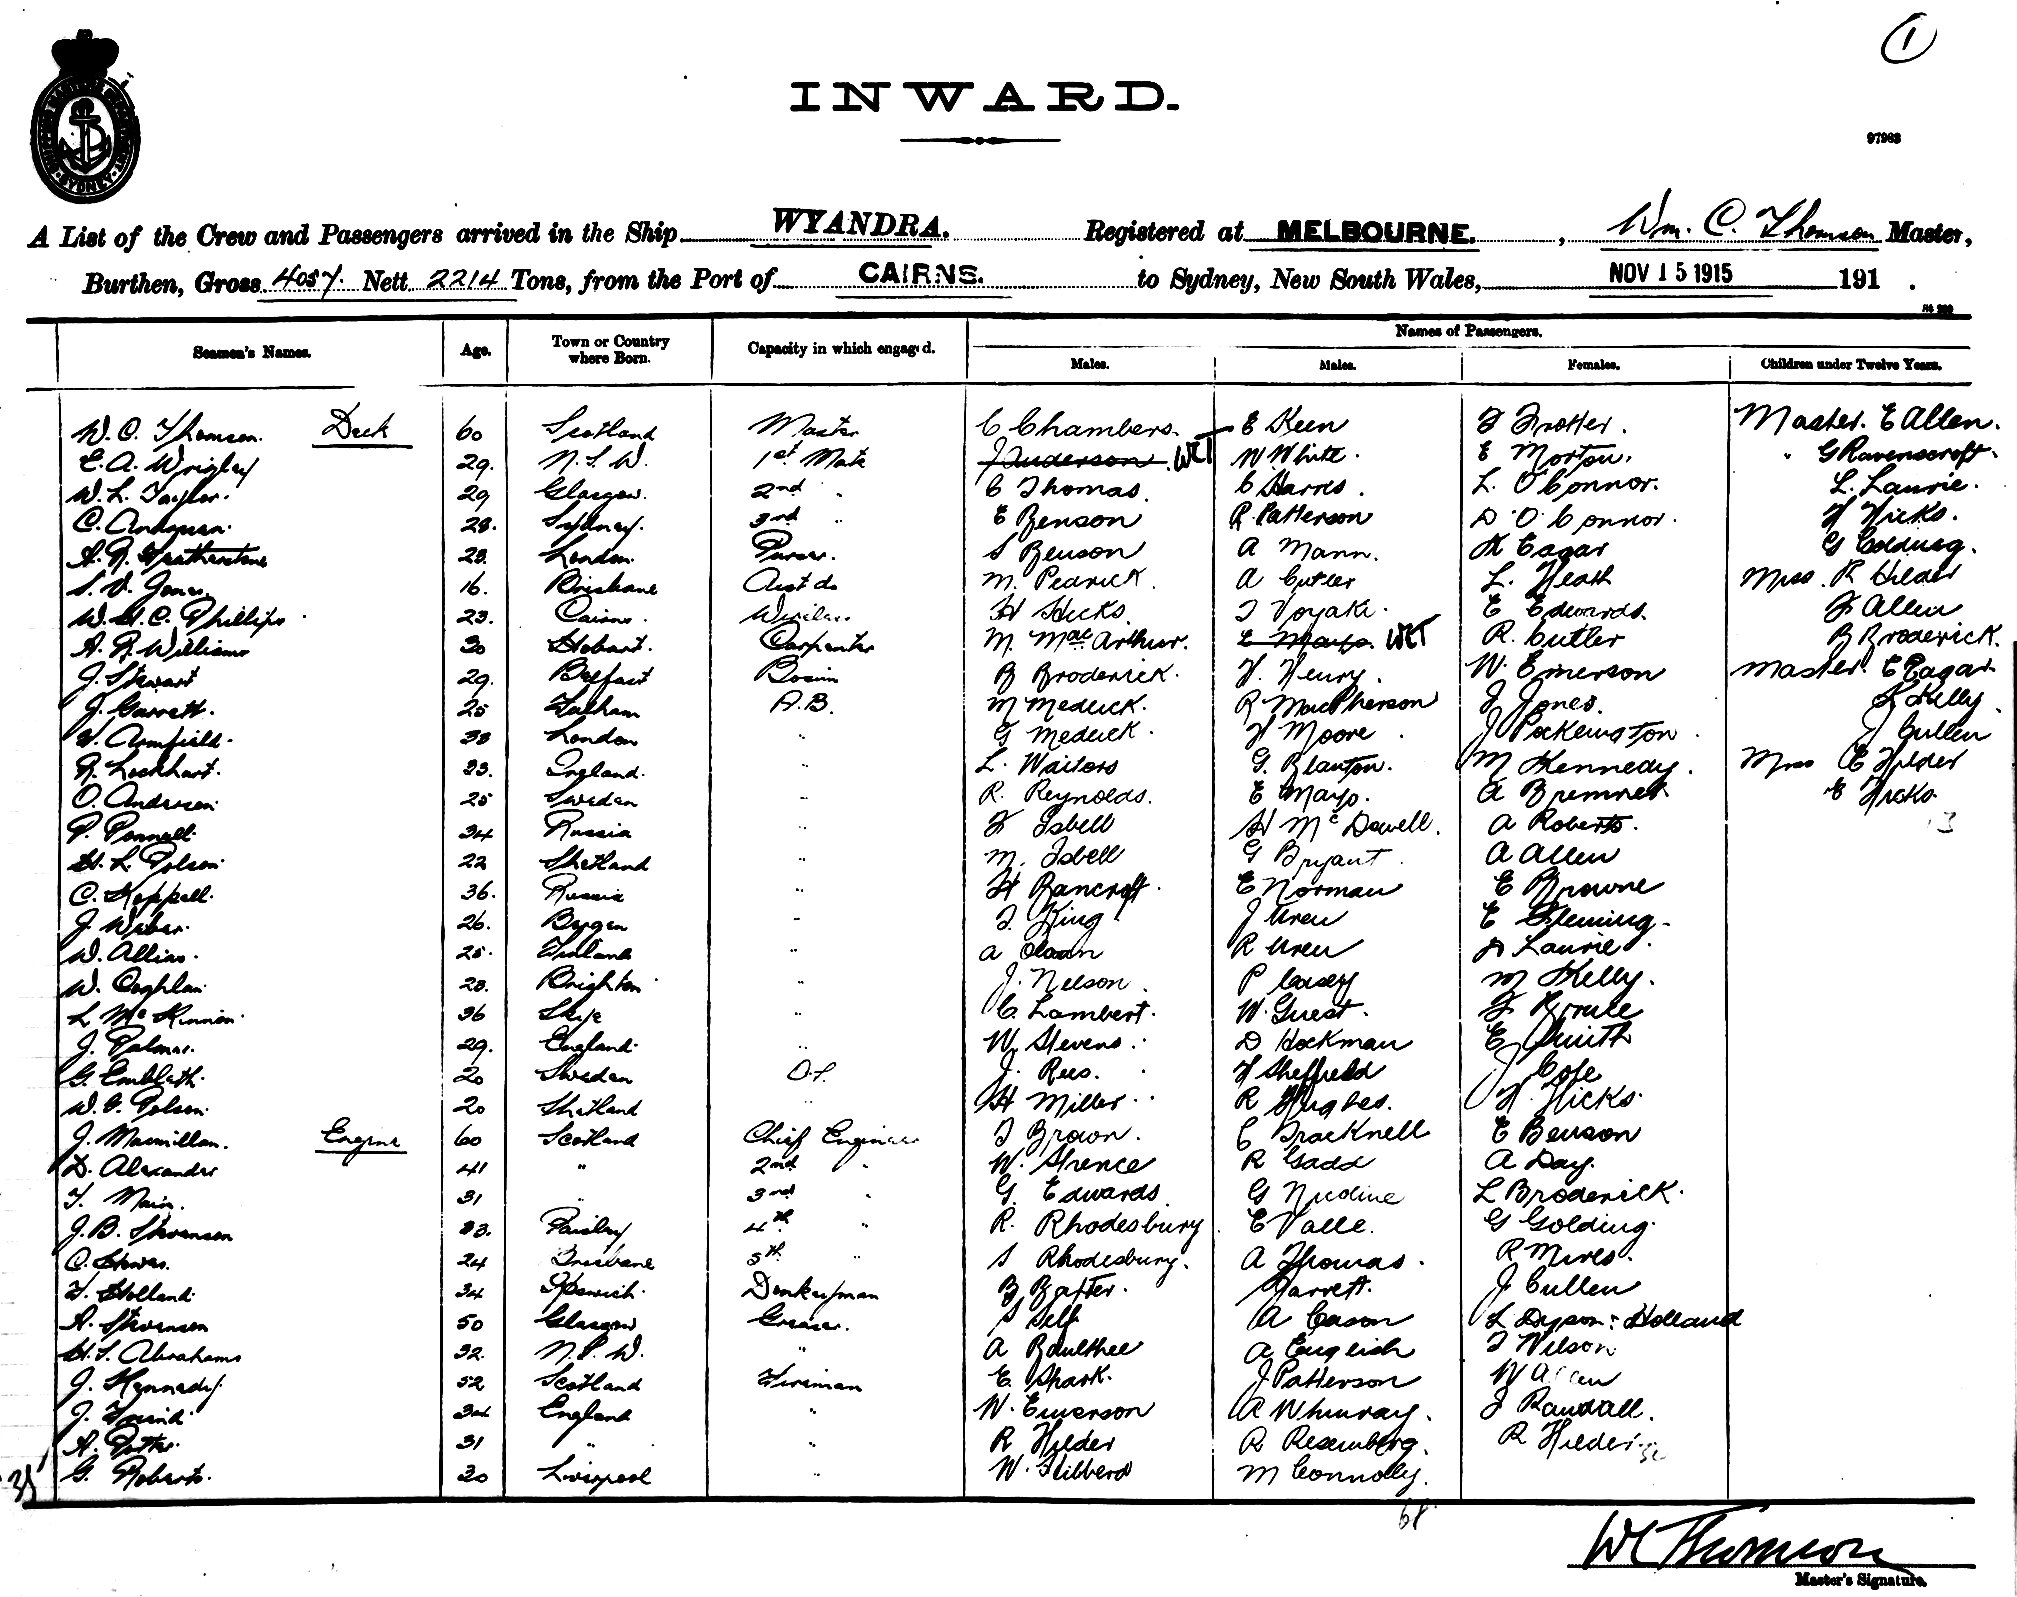 1
INWARD.
97983
A List of the Crew and Passengers arrived in the Ship WYANDRA. Registered at MELBOURNE. , Wm. C. Thomson Master,
Burthen, Gross 4057. Nett 2214 Tons, from the Port of CAIRNS. to Sydney, New South Wales, NOV 15 1915 191 .
Names of Passengers.
Seamen's Names. Age. Town or Country where Born. Capacity in which engaged. Males. Males. Females. Children under Twelve Years.
W. C. Thomson. Deck 60 Scotland Master C Chambers. E Keen F Trotter. Master. E Allen.
E. A. Wrigley 29. N.S.W. 1st Mate J Anderson. WCT W White. E Morton. " G Ravenscroft.
W. L. Taylor. 29 Glasgow. 2nd " C Thomas. C Harris. L. O'Connor. L. Laurie.
C. 28. Sydney. 3rd " E Benson R Patterson D. O'Connor. H Hicks.
A. R. Featherstone 28. London. Purser. S Benson A Mann. K Eagar G Golding.
S. V. Jones. 16. Brisbane Asst do M. Pedrick. A Cutler L. Heath Miss. R Hilder
W. H. C. Phillips 23. Cairns. Wireless H Hicks. J Voyaki. E Edwards. F Allen
A. R. Williams 30 Hobart. Carpenter M. MacArthur. E Mayo. WCT R. Cutler B Broderick.
J. Stewart 29. Belfast Bosun B Broderick. H. Henry. W. Emerson Master. E Eagar.
J. Garrett. 25 A.B. M Medlick. R MacPherson J Jones. L Kelly.
W. Armfield. 38 London " G Medlick. H Moore. J Pockington. J Cullen
R. Lockhart. 23. England. " L. Waitors G. Blanton. M Kennedy. Miss E Hilder
O. Andersen. 25 Sweden " R. Reynolds. E Mayo. A Bremner E Hicks
P. 34 Russia " F Isbell H McDowell. A Roberts. 13
H. L. Polson. 22 Shetland " M. Isbell G Bryant. A Allen
C. Keppell. 36. Russia " H Bancroft. E Norman E Browne
J. Weber. 26. Bergen " J. King J Uren E Fleming.
W. Allias. 25. Finland " A Olsson R Uren D Laurie.
W. Coghlan 28. Brighton " J. Nelson. P Casey M Kelly.
L. McKinnon. 36 Skye " C. Lambert. W. Guest.
J. Palmer. 29. England. " W. Stevens. D Hockman E Smith
G. Embleth. 20 Sweden O.S. J. Rees. H Sheffield J Cole
W. G. Polson. 20 Shetland " H Miller. R Hughes. H. Hicks.
J. Macmillan. Engine 60 Scotland Chief Engineer J Brown. C Bracknell E Benson
D. Alexander 41 " 2nd " W. Spence R Gadd A Day.
T. Main. 31 " 3rd " G. Edwards G Nicoline L Broderick.
J. B. Stevenson 23. Paisley 4th " R. Rhodesbury E Valle. G Golding.
C. 24 Brisbane 5th " S Rhodesbury. A Thomas. R Mires.
T. Holland. 34 Ipswich. Donkeyman B Baxter. Garrett. J Cullen
A. Stevenson 50 Glasgow Greaser. S Self A Cason L Dyson-Holland
H. S. Abrahams 32. N.S.W. " A Boulthee A English J Wilson
J. Kennedy. 52 Scotland Fireman E. Shark. J Patterson W Allen
J. 34 England " W. Emerson A Whinray. J Randall.
A. Potter. 31 " " R Hilder R Rosenberg. R Hilder.
35 G. Roberts. 30 Liverpool " W. Hibberd M Connolly.
68
WC Thomson
Master's Signature.